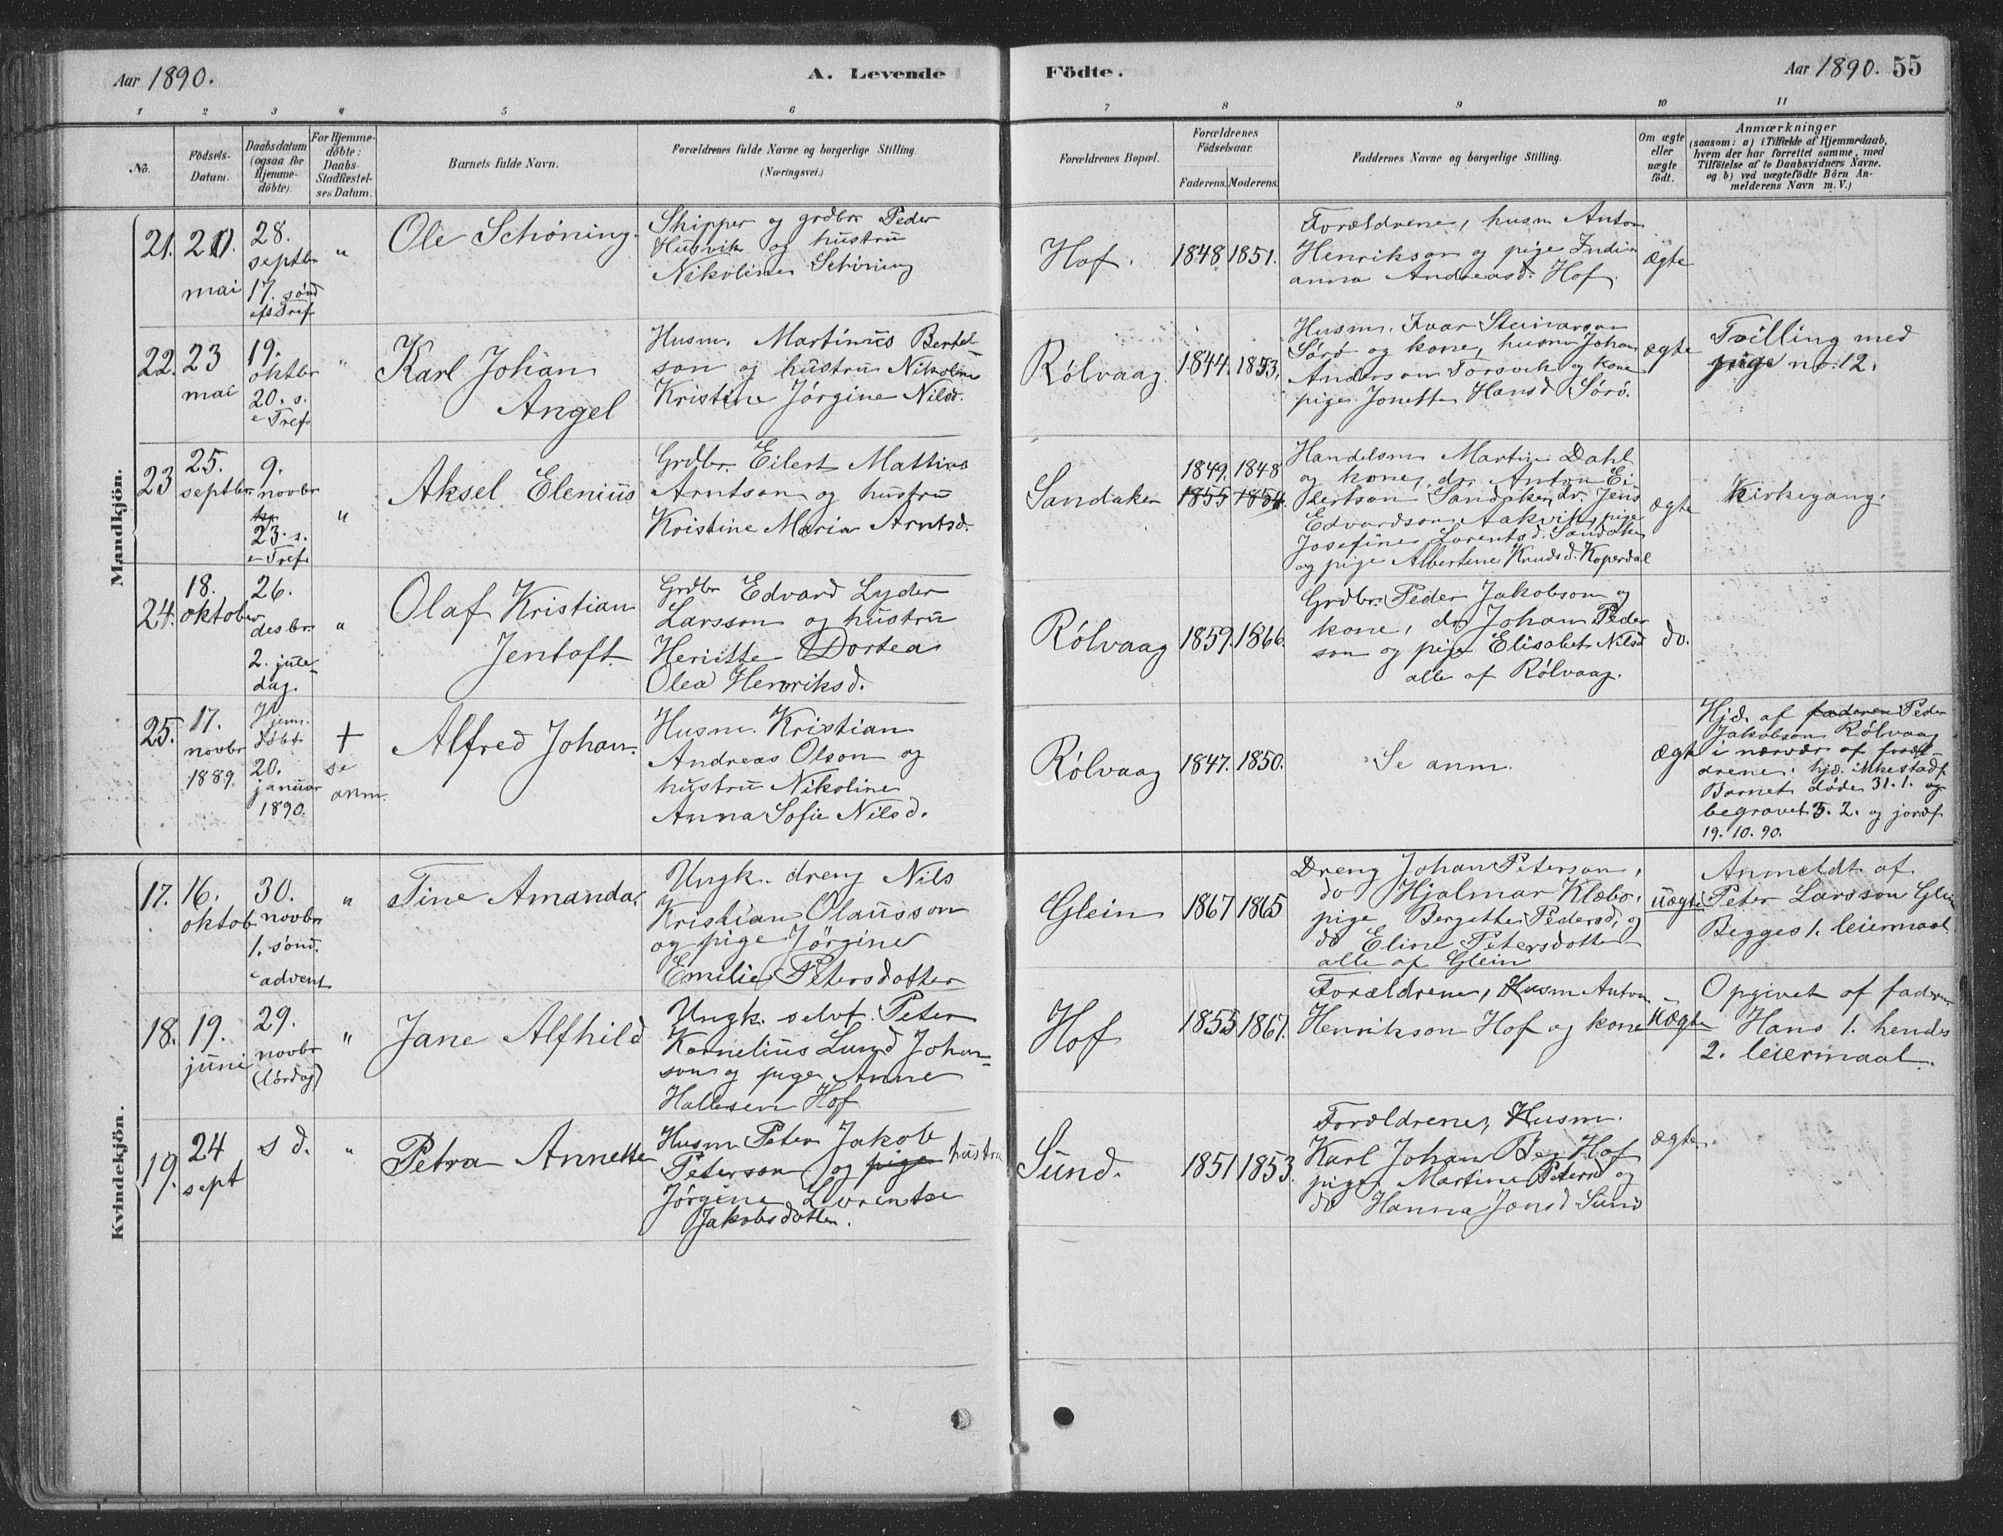 Aar 1890.
A. Levende Födte.
Aar 1890. 55
1 2 3 4 5 6 7 8 9 10 11
No.
Födsels-
Datum.
Daabsdatum
(ogsaa for
Hjemme-
döbte).
For Hjemme-
döbte:
Daabs-
Stadfæstel-
ses Datum.
Barnets fulde Navn.
Forældrenes fulde Navne og borgerlige Stilling.
(Næringsvei.)
Forældrenes Bopæl.
Forældrenes
Födselsaar.
Faderens. Moderens.
Faddernes Navne og borgerlige Stilling.
Om ægte
eller
uægte
födt.
Anmærkninger
(saasom: a) i Tilfælde af Hjemmedaab,
hvem der har forrettet samme, med
Tilföielse af to Daabsvidners Navne.
og b) ved uægtefödte Börn An-
melderens Navn m. V.)
Mandkjön.
21.
20.
mai
28.
septbr
17. sønd
eft Tref
"
Ole Schöning.
Skipper og grdbr Peder
Husvik og hustru
Nikoline Schöning
Hof.
1848
1851.
Forældrene, husm Anton
Henrikson og pige Indi
anna Andreasd. Hof.
ægte
22.
23
mai
19.
oktbr
20. s.
e Tref
"
Karl Johan
Angel
Husm. Martinus Bertel
son og hustru Nikoline
Kristine Jørgine Nilsd.
Rølvaag
1844.
1853.
Husm. Ivar Steinarson
Sørø og kone, husm Johan
Anderson Torsvik og kone
pige Jonette Hansd Sørø.
ægte
Tvilling med
pige no. 12.
23
25.
septbr
9.
novbr
23. s.
e Tref
"
Aksel Elenius
Grdbr. Eilert Mattias
Arntson og hustru
Kristine Maria Arntsd.
Sandaker
1849. 1848
1855 1854.
Handelsm Martin Dahl
og kone, dr Anton Ei-
lertson Sandaker, dr. Jens
Edvardson Aakvik, pige
Josefine Lorentsd. Sandaker
og pige Albertine Knudsd. Koperdal
ægte
Kirkegang.
24.
18.
oktober
26.
desbr.
2. jule-
dag.
"
Olaf Kristian
Jentoft.
Grdbr Edvard Lyder
Larsson og hustru
Heriette Dortea
Olea Henriksd.
Rølvaag
1859.
1866.
Grdbr. Peder Jakobson og
kone, dr Johan Peder
son og pige Elisabet Nilsd
alle af Rølvaag.
do.
25.
17.
novbr
1889.
Hjem.
døbt
20.
januar
1890.
+
se
anm.
Alfred Johan.
Husm. Kristian
Andreas Olson og
hustru Nikoline
Anna Sofie Nilsd.
Rølvaag
1847.
1850.
Se anm.
ægte
Hjd. af faderen Peder
Jakobson Rølvaag
i nærvær af foræl-
drene. hjd. ikke stadf
Barnet døde 31. 1. og
begravet 5. 2. og jordf
19. 10. 90.
Kvindekjön.
17.
16.
oktob
30.
novbr
1. sønd.
advent
"
Tine Amanda.
Ungk. dreng Nils
Kristian Olausson
og pige Jørgine
Emilie Petersdotter
Glein
1867
1865
Dreng Johan Peterson,
do Hjalmar Klæbo,
pige Bergette Pedersd, og
do Eline Petersdotter
alle af Glein
uægte
Anmeldt af
Peter Larsson Glein
Begges 1. leiermaal
18.
19.
juni
29.
novbr
(lørdag)
"
Jane Alfhild
Ungk. selvf. Peter
Kornelius Lund Johan-
son og pige Anne
Hallesen Hof
Hof
1855
1867.
Forældrene, Husm Anton
Henrikson Hof og kone
uægte
Opgivet af faderen
Hans 1. hendes
2. leiermaal.
19.
24
sept
s d.
"
Petra Annette
Husm Peter Jakob
Peterson og pige hustru
Jørgine Lorentse
Jakobsdotter.
Sund.
1851
1853.
Forældrene, Husm.
Karl Johan Berg Hof
pige Martine Petersd og
do Hanna Jonsd Sund
ægte.